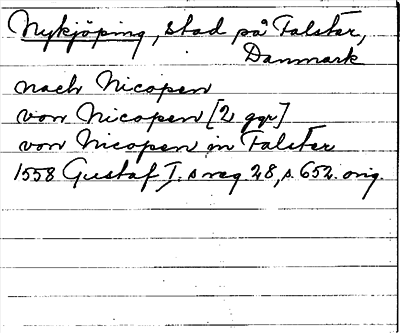 Nykjöping, stad på Falster,
Danmark
nach Nicopen
von Nicopen [2 ggr]
von Nicopen in Falster
1558 Gustaf I:s reg 28, s. 652. orig.